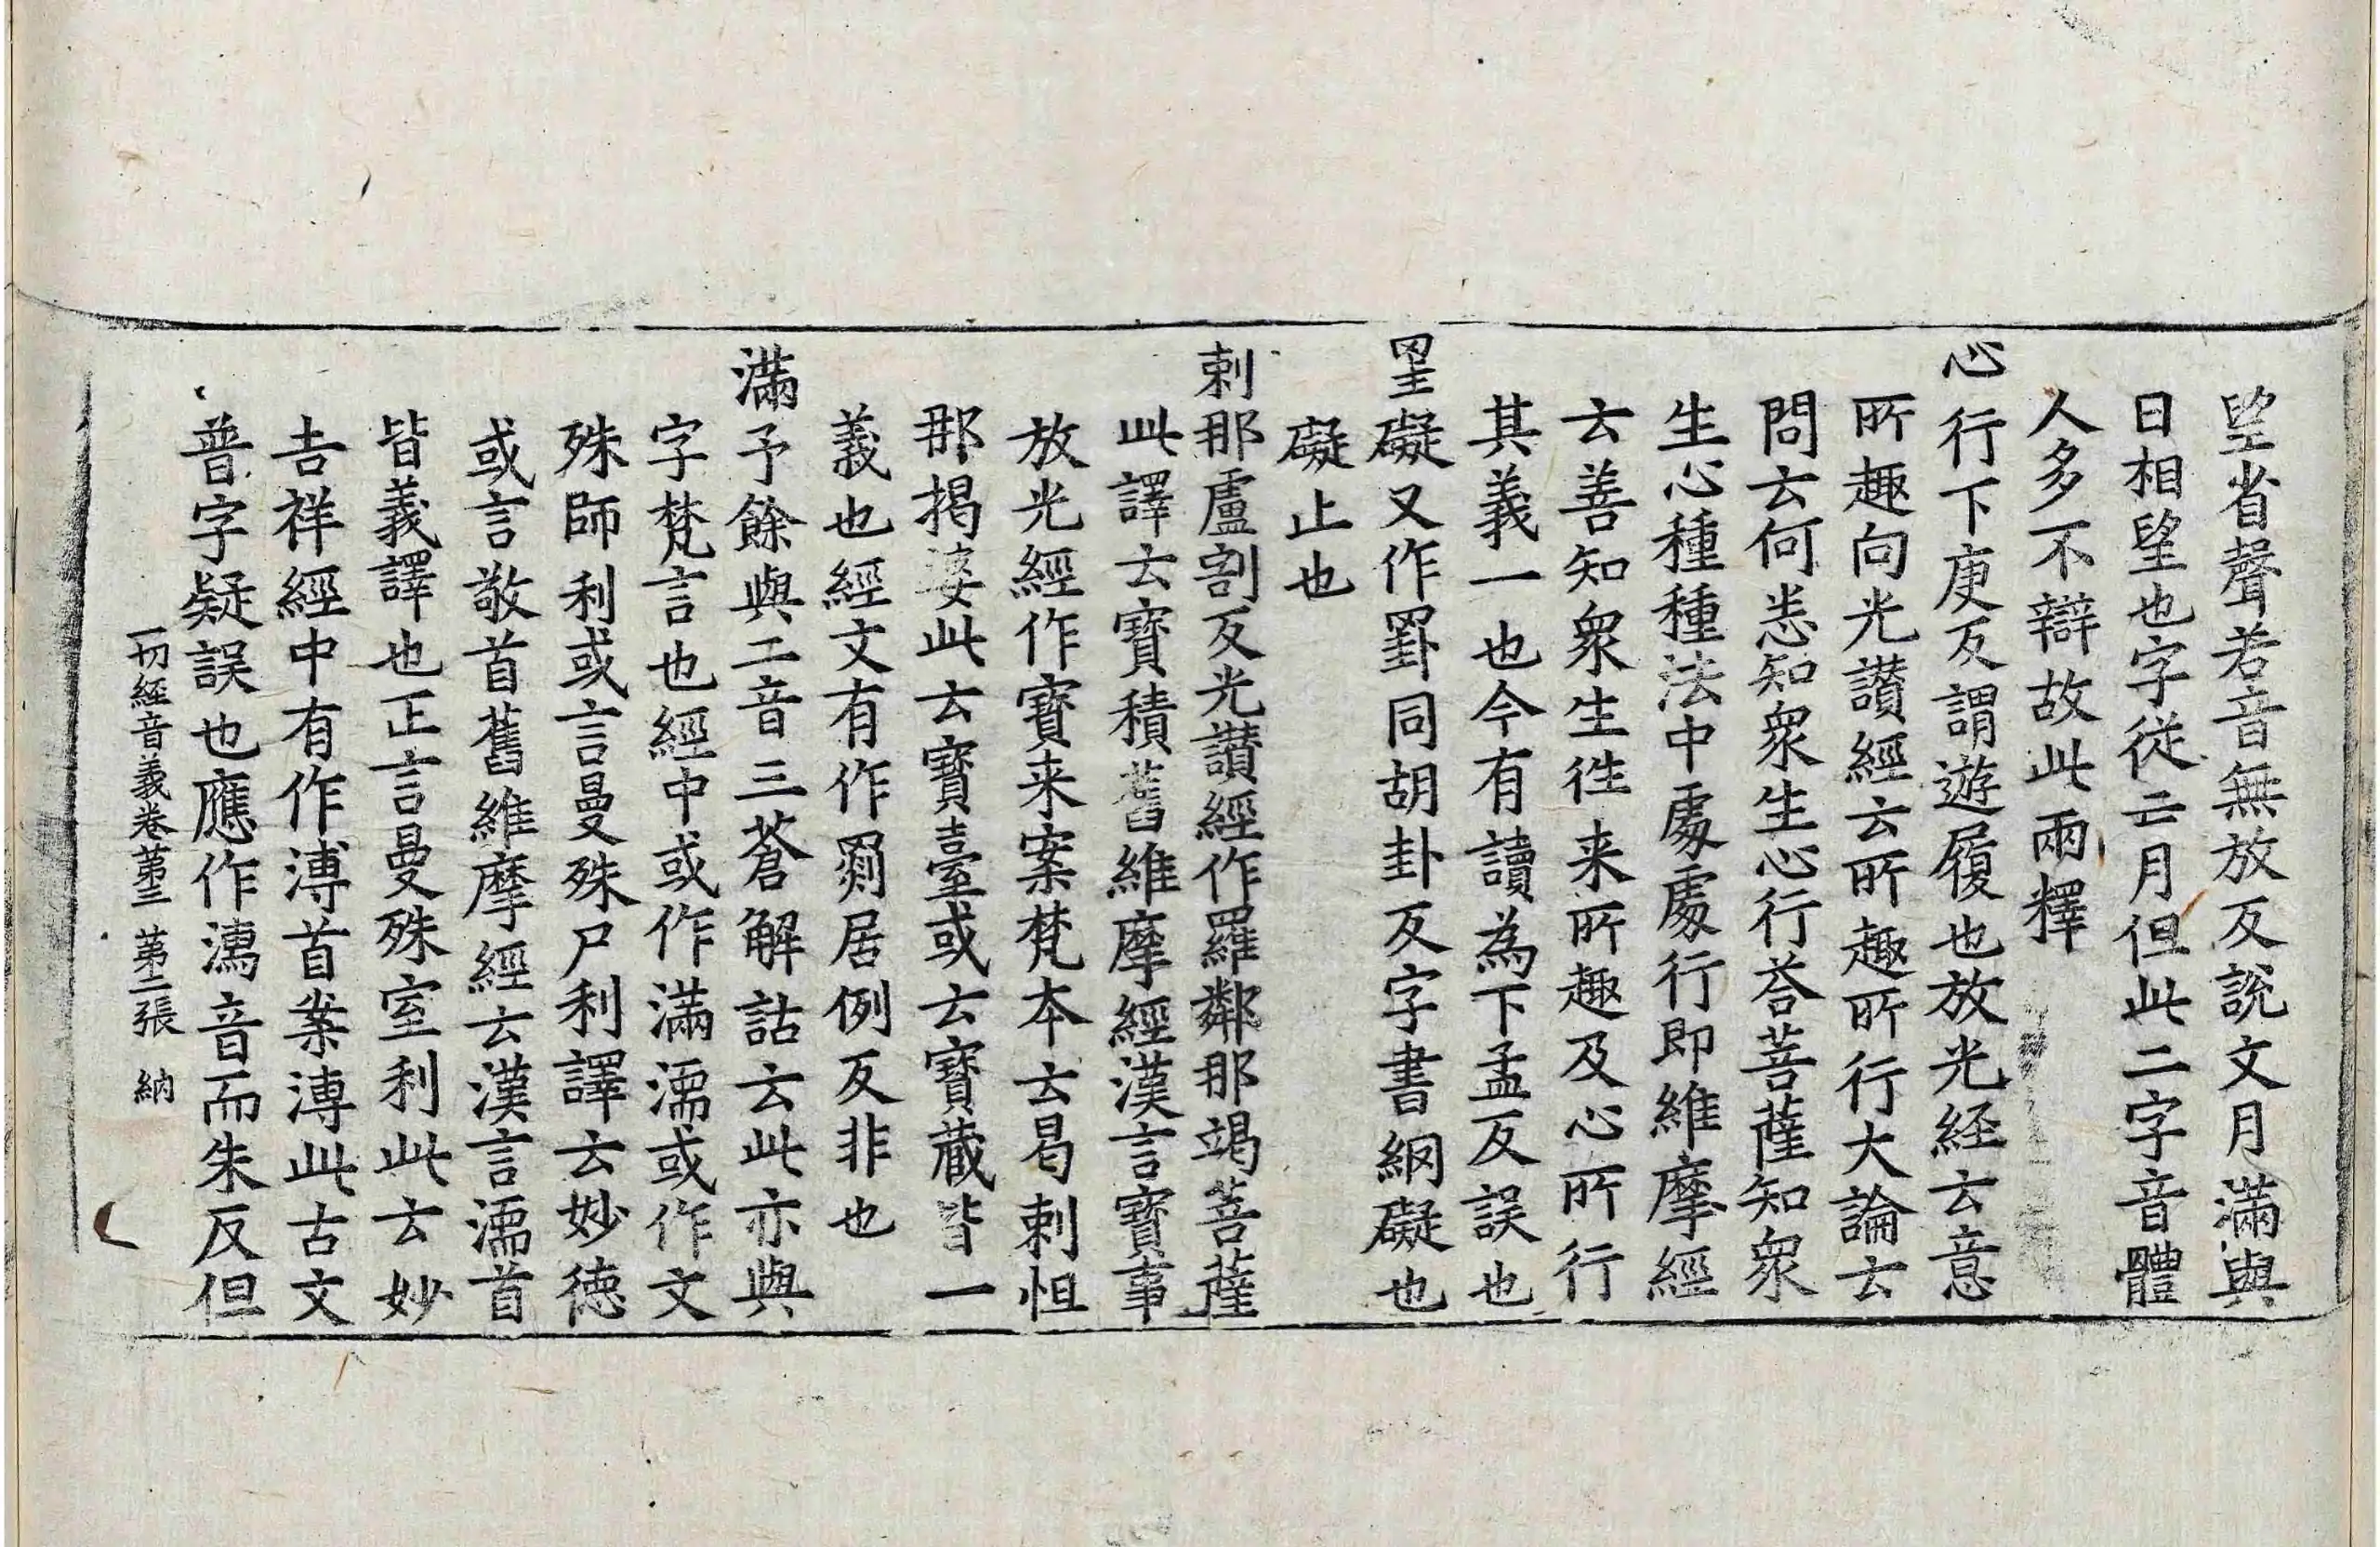 朢省聲若音無放反說文月滿與
日相朢也字從亡月但此二字音體
人多不辯故此兩釋
心行下庚反謂遊履也放光経云意
所趣向光讃經云所趣所行大論云
問云何悉知衆生心行荅菩薩知衆
生心種種法中處處行即維摩經
云善知衆生徃来所趣及心所行
其義一也今有讀為下孟反誤也
罣礙又作罫同胡卦反字書網礙也
礙止也
剌那盧割反光讃經作羅鄰那竭菩薩
此譯云寶積舊維摩經漢言寶事
放光經作寶来案梵本云曷剌怛
那揭婆此云寶臺或云寶藏皆一
義也經文有作罽居例反非也
滿予餘與二音三蒼解詁云此亦與
字梵言也經中或作滿濡或作文
殊師利或言曼殊尸利譯云妙徳
或言敬首舊維摩經云漢言濡首
皆義譯也正言曼殊室利此云妙
吉祥經中有作溥首案溥此古文
普字疑誤也應作濡音而朱反但
一切經音義卷苐三 苐二張 納